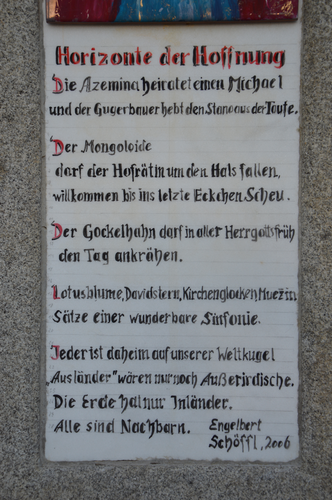 Horizonte der Hoffnung
Die Azemina heiratet einen Michael
und der Gugerbauer hebt den Stanoa aus der Taufe.
Der Mongoloide
darf der Hofrätin um den Hals fallen,
willkommen bis ins letzte Eckchen Scheu.
Der Gockelhahn darf in aller Herrgottsfrüh
den Tag ankrähen.
Lotusblume, Davidstern, Kirchenglocken Muezin
Sätze einer wunderbare Sinfonie.
Jeder ist daheim auf unserer Weltkugel
„Ausländer" wären nur noch Außerirdische.
Die Erde hat nur Inländer.
Alle sind Nachbarn. Engelbert
Schöffl, 2006